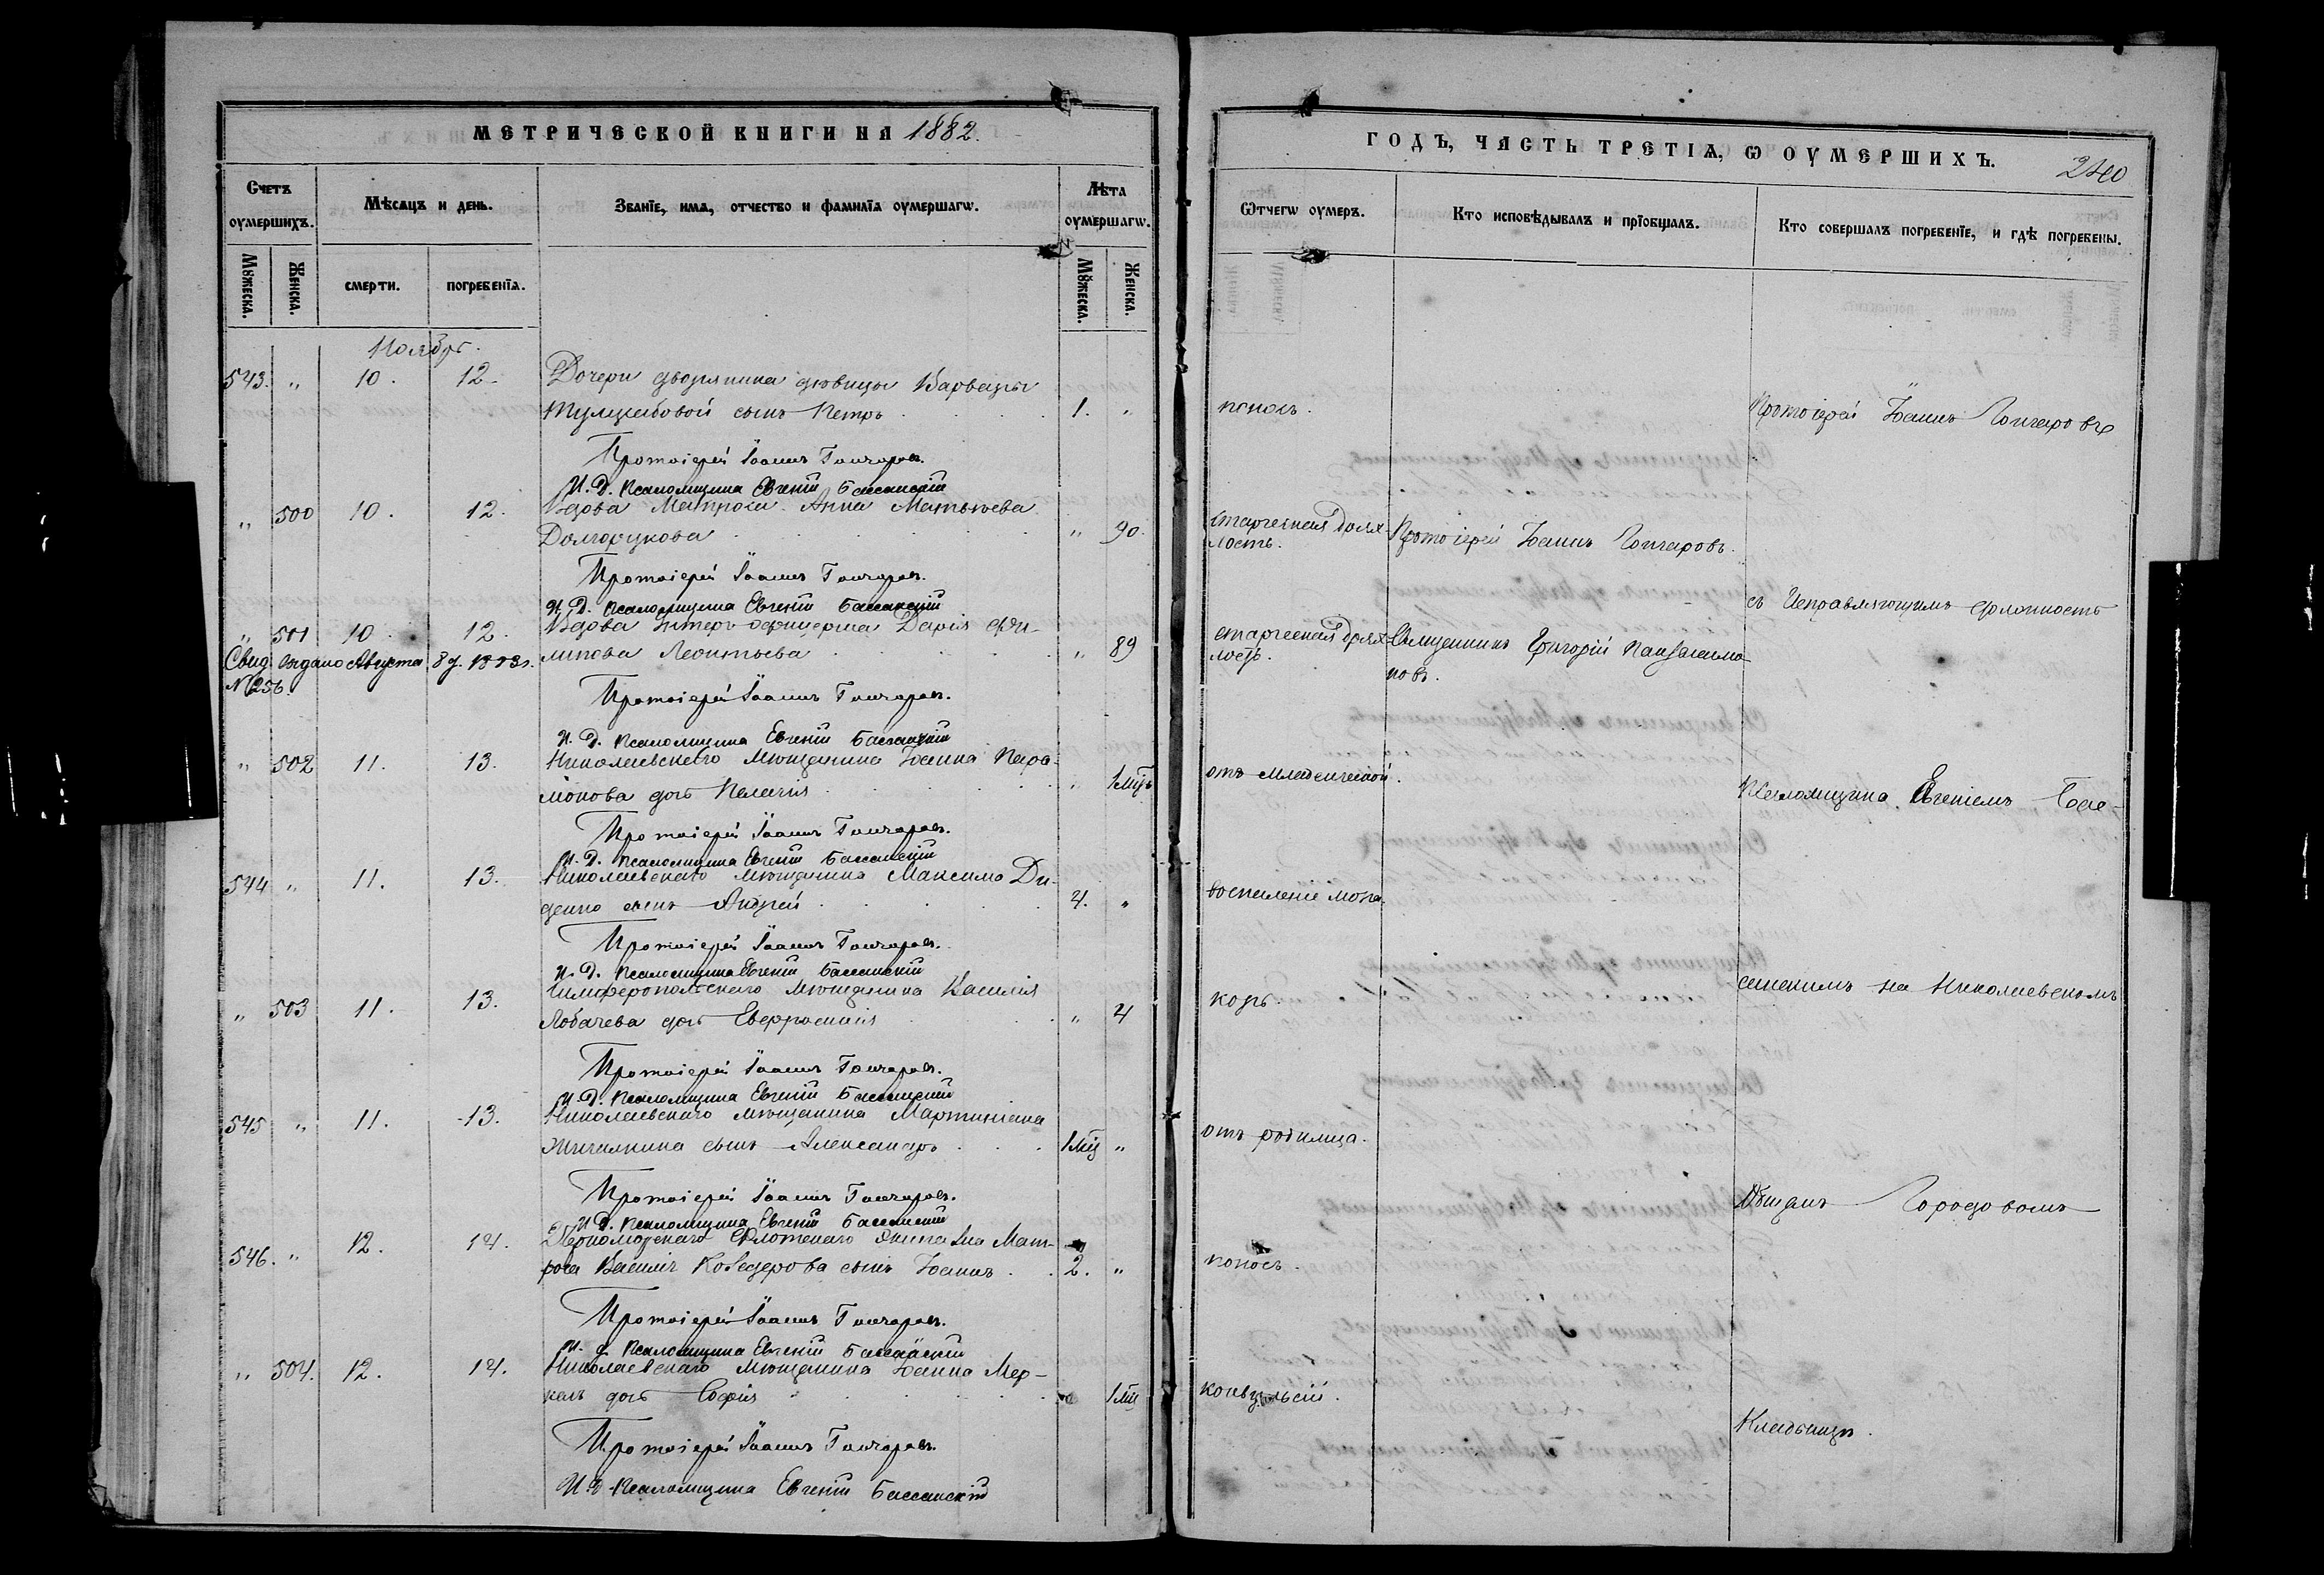 МЕТРИЧЕСКОЙ КНИГИ НА 1882.
Счетъ оумершихъ.
Мѣсяцъ и день.
Званіе, имя, отчество и фамилія оумершагѡ.
Лѣта оумершагѡ.
Мꙋжеска.
Женска.
смерти.
погребенія.
Мꙋжеска.
Женска.
Ноябрь.
543. " 10. 12. Дочери дворянина дѣвицы Варвары
сынъ Петръ 1. "
Протоіерей Іоаннъ Гончаровъ.
И. Д. Псаломщика Евгеній Бассанскій
" 500 10. 12. Вдова Матроса Анна Матвѣева
Долгорукова " 90.
Протоіерей Іоаннъ Гончаровъ.
И. Д. Псаломщика Евгеній Бассанскій
" 501 10. 12. Вдова Унтеръ-офицерша Дарія Фи-
липова Леонтьева " 89
Свид. выдано Августа 8 д.
№ 256.
Протоіерей Іоаннъ Гончаровъ.
И. Д. Псаломщика Евгеній Бассанскій
" 502 11. 13. Николаевскаго Мѣщанина Іоанна Пара-
монова дочь Пелагія " 1 мцъ
Протоіерей Іоаннъ Гончаровъ.
И. Д. Псаломщика Евгеній Бассанскій
544 " 11. 13. Николаевскаго мѣщанина Максима Ди-
денко сынъ Андрей 4. "
Протоіерей Іоаннъ Гончаровъ.
И. Д. Псаломщика Евгеній Бассанскій
" 503 11. 13. Симферопольскаго Мѣщанина Василія
Лобачева дочь Евфросинія " 4
Протоіерей Іоаннъ Гончаровъ.
И. Д. Псаломщика Евгеній Бассанскій
545 " 11. 13. Николаевскаго мѣщанина Мартиніана
сынъ Александръ 1 мц "
Протоіерей Іоаннъ Гончаровъ.
И. Д. Псаломщика Евгеній Бассанскій
546. " 12. 14. Черноморскаго Флотскаго Экипажа Мат-
роса Василія сынъ Іоаннъ 2. "
Протоіерей Іоаннъ Гончаровъ.
И. д. Псаломщика Евгеній Бассанскій
" 504. 12. 14. Николаевскаго Мѣщанина Іоанна Мер-
каль дочь Софія 1 мц
Протоіерей Іоаннъ Гончаровъ.
И. Д. Псаломщика Евгеній Бассанскій
ГОДЪ, ЧАСТЬ ТРЕТІѦ, Ѡ ОУМЕРШИХЪ.
240
Ѿчегѡ оумеръ.
Кто исповѣдывалъ и пріобщалъ.
Кто совершалъ погребеніе, и гдѣ погребены.
поносъ.
Протоіерей Іоаннъ Гончаровъ
старческая дрях-
лость.
Протоіерей Іоаннъ Гончаровъ.
съ Исправляющимъ должность
старческая дрях-
лость.
Священникъ Григорій
новъ.
отъ младенческой.
Псаломщика Евгеніемъ Бас-
воспаленіе мозга.
санскимъ на Николаевскомъ
корь.
отъ родимца.
Общемъ Городовомъ
поносъ.
конвульсій.
Кладбищѣ.